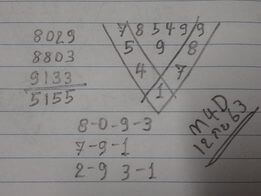 8029
8803
9133
5155
785499
5 9 8
4 7
1
8-0-9-3
7-9-1
2-9 3-1